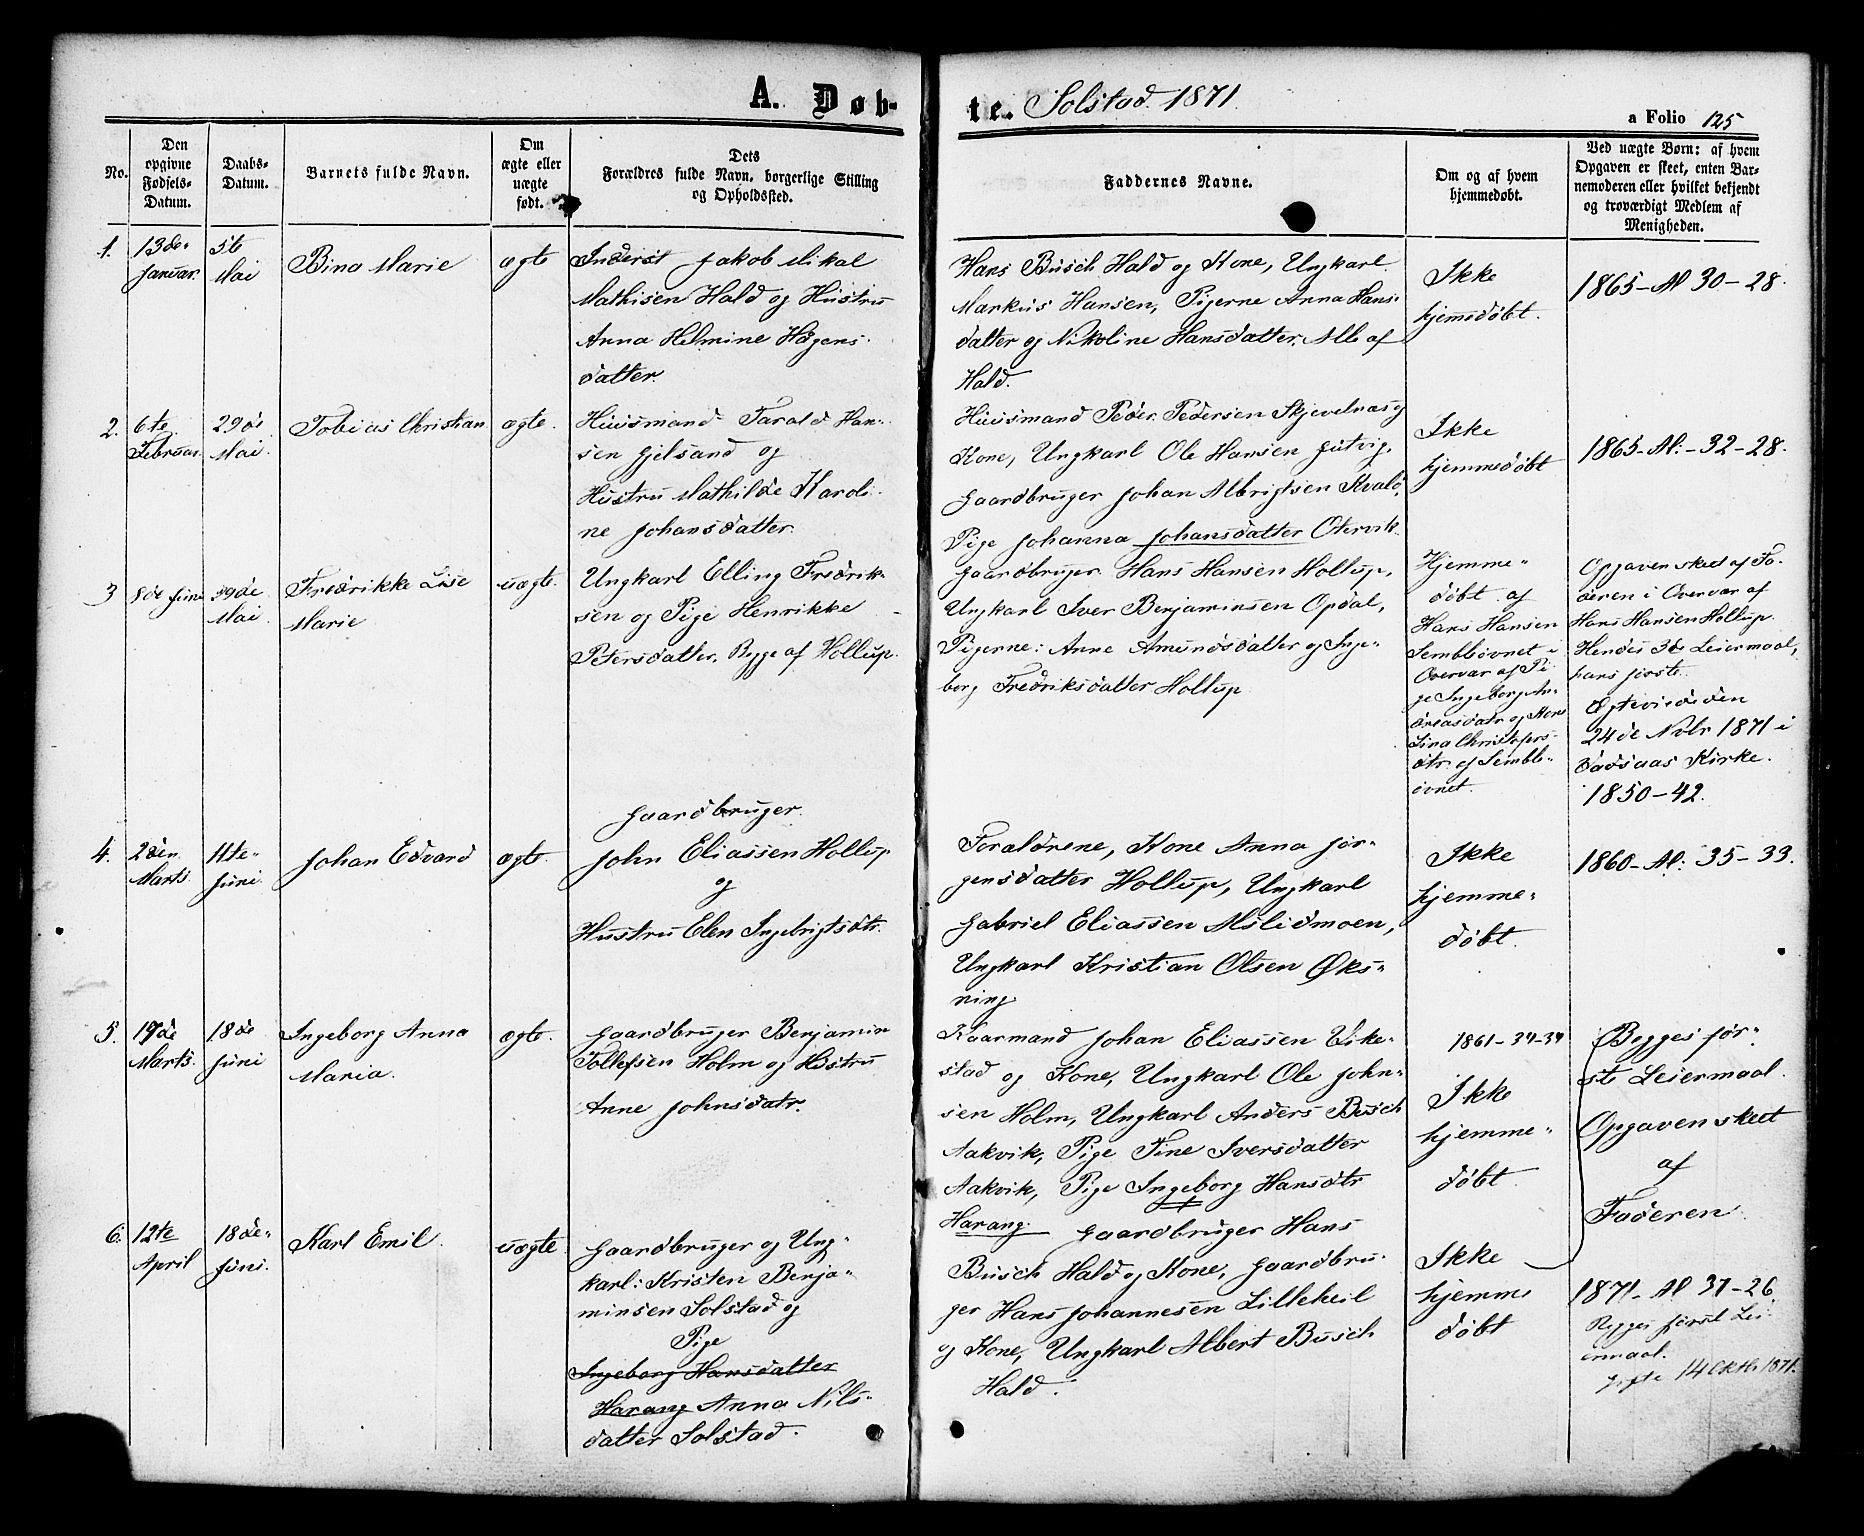 A. Døb-
te. Solstad 1871.
a Folio 125
No.
Den
opgivne
Fødsels-
Datum.
Daabs-
Datum.
Barnets fulde Navn.
Om
ægte eller
uægte
født.
Dets
Forældres fulde Navn, borgerlige Stilling
og Opholdssted.
Faddernes Navne.
Om og af hvem
hjemmedøbt.
Ved uægte Børn: af hvem
Opgaven er skeet, enten Bar-
nemoderen eller hvilket bekjendt
og troværdigt Medlem af
Menigheden.
1.
13de
Januar.
5te
Mai
Bina Marie
ægte
Inderst Jakob Mikal
Mathisen Hald og Hustru
Anna Helmine Hagens-
datter.
Hans Busch Hald og Kone, Ungkarl
Markus Hansen, Pigerne Anna Hans-
datter og Nikoline Hansdatter. Alle af
Hald.
Ikke
hjemsdøbt.
1865-Al 30-28.
2.
6te
Februar.
29de
Mai.
Tobias Christian
ægte.
Huusmand Tarald Han-
sen Gjelsand og
Hustru Mathilde Karoli-
ne Johansdatter.
Huusmand Peder Pedersen Skjevelnæs og
Kone, Ungkarl Ole Hansen Gutvig,
Gaardbruger Johan Albrigtsen Kvalø,
Pige Johanna Johansdatter Otervik
Ikke
hjemmedøbt
1865-Al.-32-28.
3
8de Juni
29de
Mai.
Fredrikke Lise
Marie
uægte.
Ungkarl Elling Fredrik-
sen og Pige Henrikke
Petersdatter, Begge af Hollup.
Gaardbruger Hans Hansen Hollup,
Ungkarl Iver Benjaminsen Opdal,
Pigerne: Anne Amundsdatter og Inge-
borg Fredriksdatter Hollup
Hjemme-
døbt af
Hans Hansen
Semblsovnet i
Overvær af Pi
ge Ingeborg An-
dreasdatr og Kone
Lina Christofers-
dtr. af Sembls-
ovnet.
Opgaven skeet af Fa-
deren i Overvær af
Hans Hansen Hollup.
Hendes 3de Leiermaal,
hans første.
Ægteviede den
24de Novbr 1871 i
Vadsaas Kirke.
1850-42.
4.
2den
Marts.
11te
Juni.
Johan Edvard
ægte.
Gaardbruger
John Eliassen Hollup
og
Hustru Elen Ingebrigtsdtr.
Forældrene, Kone Anna Jør-
gensdatter Hollup, Ungkarl
Gabriel Eliassen Mslidmoen,
Ungkarl Kristian Olsen Øks-
ning
Ikke
hjemme-
døbt.
1860-Al: 35-33.
5.
19de
Marts.
18de
Juni
Ingeborg Anna
Maria.
ægte.
Gaardbruger Benjamin
Tollefsen Holm og Hustru
Anne Johnsdatr.
Kaarmand Johan Eliassen Eike-
stad og Kone, Ungkarl Ole John-
sen Holm, Ungkarl Anders Busch
Aakvik, Pige Tine Iversdatter
Aakvik, Pige Ingeborg Hansdtr
Harang.
1861-34-34
Ikke
hjemme-
døbt.
Begges før-
ste Leiermaal.
Opgaven skeet
af
Faderen.
6.
12te
April
18de
Juni.
Karl Emil.
uægte.
Gaardbruger og Ung-
karl: Kristen Benja-
minsen Solstad og
Pige
Ingeborg Hansdatter
Harang Anna Nils-
datter Solstad.
Gaardbruger Hans
Busch Hald og Kone, Gaardbru-
ger Hans Johannesen Lilleheil
og Kone, Ungkarl Albert Busch
Hald.
Ikke
hjemme
døbt
1871-Al 37-26.
Begges først Lei-
ermaal.
gifte 14 Oktbr 1871.